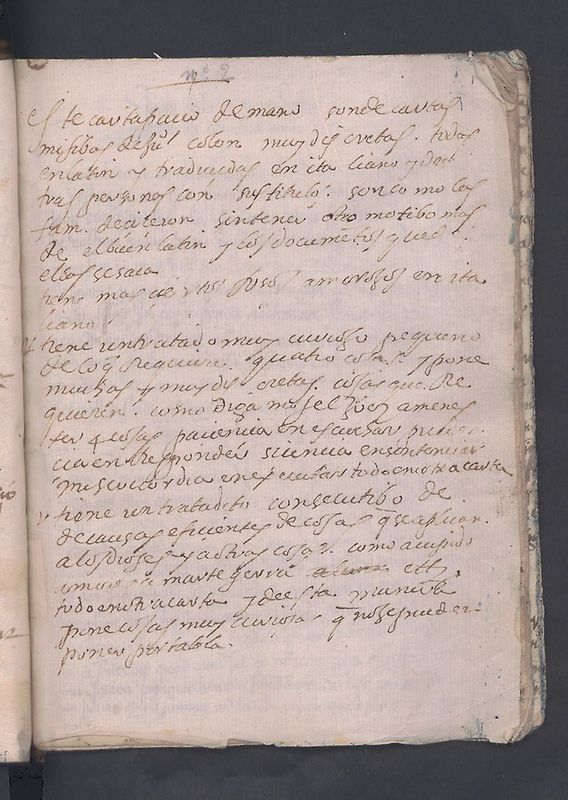 nº 2
Este cartapacio de mano son de cartas
misibas de hul colon muy discretas. todas
en latin y traducidas en ita liano y de
tras personas con sus titulos. son como las
fam. de ciceron sin tener otro motibo mas
de el buen latin y los documētos que d
ellas se saca
tiene mas ciertos amorosos en ita
liano
y tiene un tratado muy curioso pequeno
de lo q̄ Requiere quatro cosas. y pone
muchas y muy discretas cosas que Re
quieren. como diga mos el Juez a menes
ter 4 cosas paciencia en escuchar
cia en Responder sciencia en sentenciar
misericordia en executar todo en otra carta
y tiene un tratadito consecutibo de
de causas eficientes de cosas q̄ se aplican
a los dioses y a otras cosas. como a cupido
amor a marte gerra ett.
todo en otra carta y de esta manera
pone cosas muy curiosas q̄ no se pueden
poner por tabla.